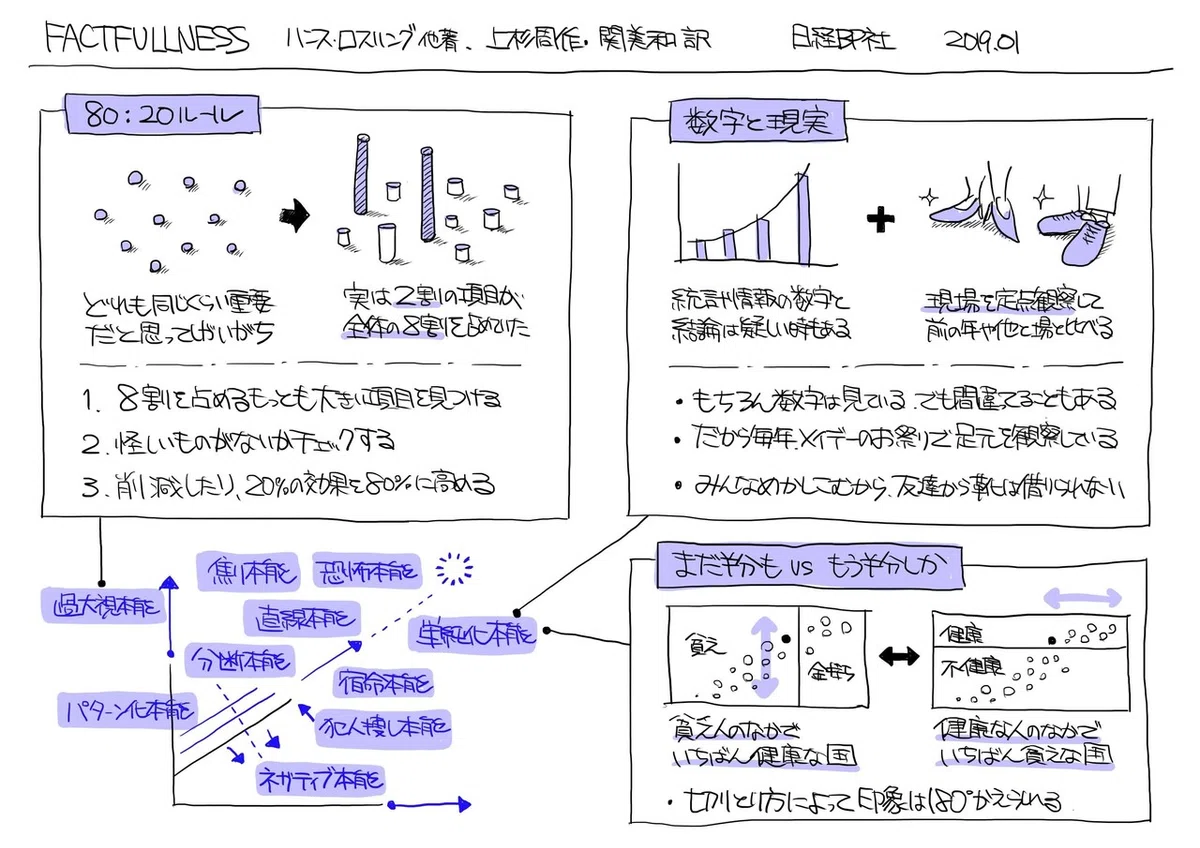 FACTFULLNESS ハンス・ロスリング他著、上杉周作・関美和 訳 日経BP社 2019.01
80:20ルール
どれも同じくらい重要
だと思ってしまいがち
実は2割の項目が
全体の8割を占めていた
1. 8割を占めるもっとも大きい項目を見つける
2. 怪しいものがないかチェックする
3. 削減したり、20%の効果を80%に高める
数字と現実
統計や情報の数字と
結論は疑しい時もある
現場を定点観察して
前の年や他の場と比べる
・もちろん数字は見ている。でも間違ってることもある
・だから毎年、メイデーのお祭りで足元を観察している
・みんなめかしこむから、友達から靴は借りられない
過大視本能
焦り本能
恐怖本能
直線本能
単純化本能
分断本能
宿命本能
パターン化本能
犯人捜し本能
ネガティブ本能
まだ半分も vs もう半分しか
貧乏
金持ち
健康
不健康
貧乏人のなかで
いちばん健康な国
健康な人のなかで
いちばん貧乏な国
・切りとり方によって印象は180°かえられる